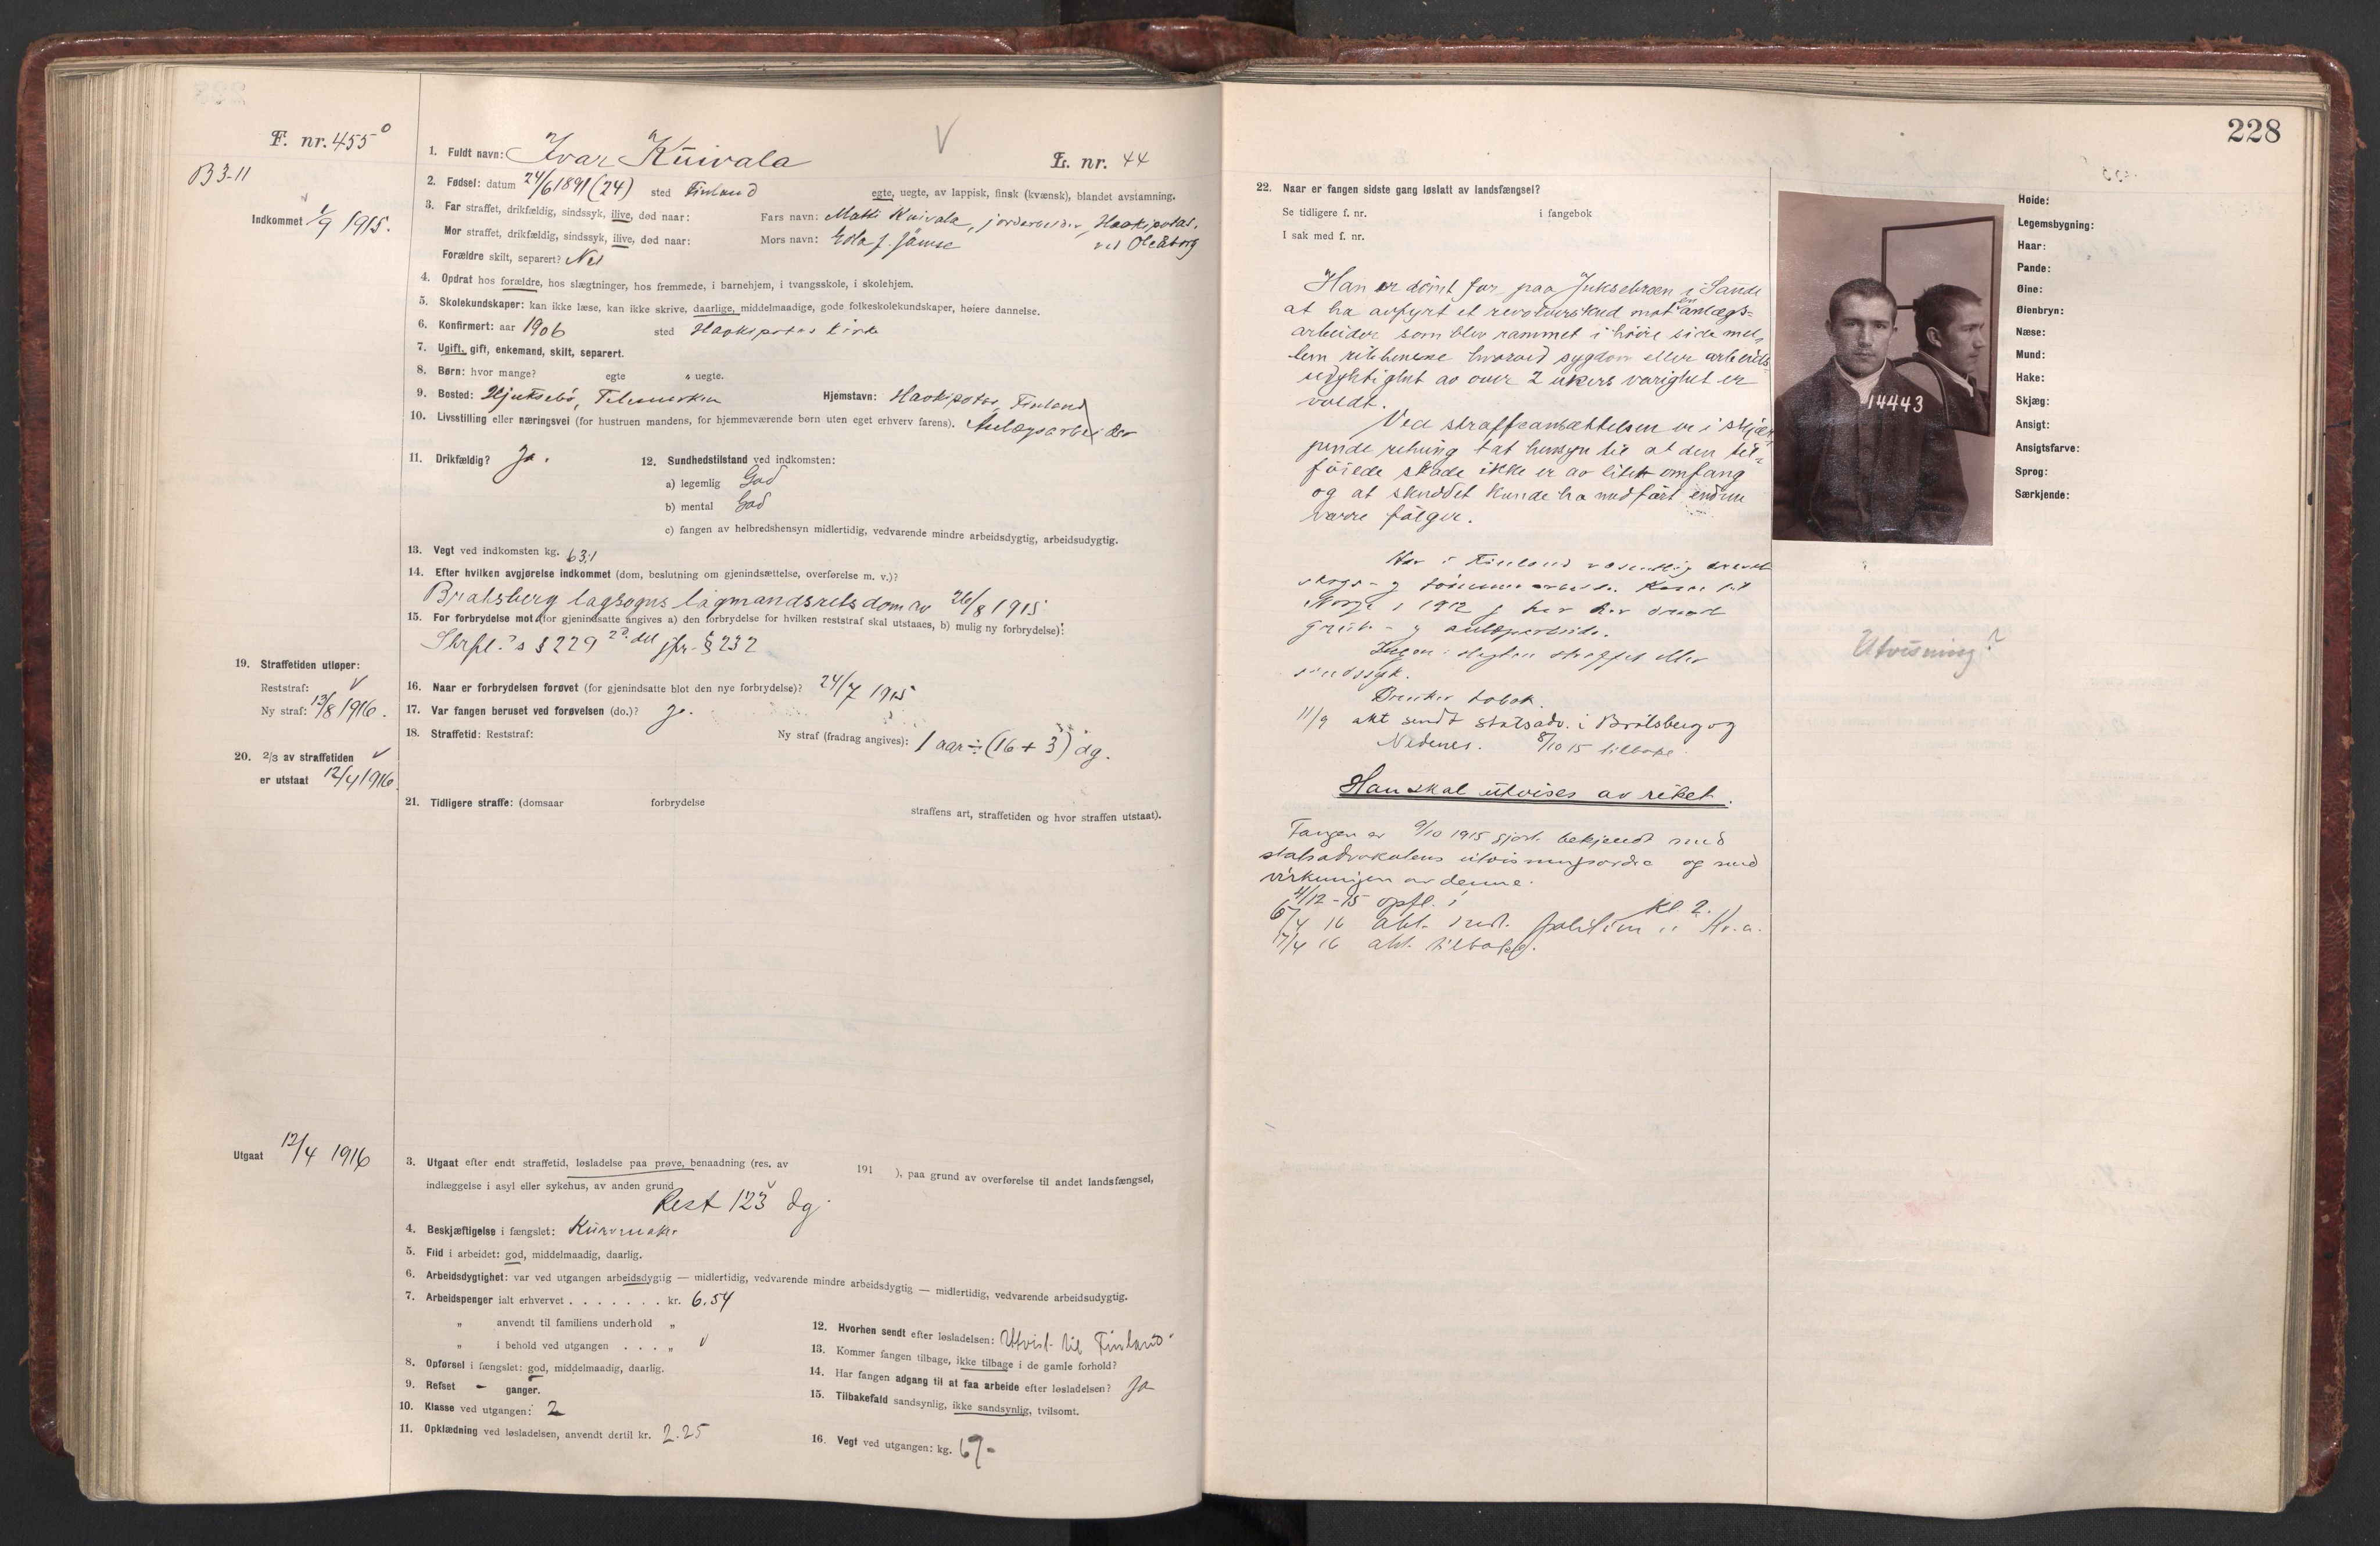 F. nr. 455
B3-11
Indkommet 1/9 1915.
1. Fuldt navn: Ivar Kuivala
L. nr. 44
2. Fødsel: datum 24/6 1891 (24) sted Finland egte, uegte, av lappisk, finsk (kvænsk), blandet avstamning.
3. Far straffet, drikfældig, sindssyk, ilive, død naar: Fars navn: Matti Kuivala, jordarbeider, Haokipotas,
ved Oleåborg
Mor straffet, drikfældig, sindssyk, ilive, død naar: Mors navn:
Forældre skilt, separert? Nei
4. Opdrat hos forældre, hos slægtninger, hos fremmede, i barnehjem, i tvangsskole, i skolehjem.
5. Skolekundskaper: kan ikke læse, kan ikke skrive, daarlige, middelmaadige, gode folkeskolekundskaper, høiere dannelse.
6. Konfirmert: aar 1906 sted Haokipotas kirke
7. Ugift, gift, enkemand, skilt, separert.
8. Børn: hvor mange? egte „ uegte.
9. Bosted: Hjuksebö, Telemarken Hjemstavn: Haokipotas, Finland
10. Livsstilling eller næringsvei (for hustruen mandens, for hjemmeværende børn uten eget erhverv farens). Anlægsarbeider
11. Drikfældig? Ja. 12. Sundhedstilstand ved indkomsten:
a) legemlig God
b) mental God
c) fangen av helbredshensyn midlertidig, vedvarende mindre arbeidsdygtig, arbeidsudygtig.
13. Vegt ved indkomsten kg. 63.1
14. Efter hvilken avgjørelse indkommet (dom, beslutning om gjenindsættelse, overførelse m. v.)?
Bratsberg lagsogns lagmandsrets dom av 26/8 1915
15. For forbrydelse mot (for gjenindsatte angives a) den forbrydelse for hvilken reststraf skal utstaaes, b) mulig ny forbrydelse):
Strfl.s § 229 2d. del jfr. § 232
19. Straffetiden utløper:
Reststraf: V
Ny straf: 13/8 1916.
16. Naar er forbrydelsen forøvet (for gjenindsatte blot den nye forbrydelse)? 24/7 1915
17. Var fangen beruset ved forøvelsen (do.)? Ja.
18. Straffetid: Reststraf: Ny straf (fradrag angives): 1 aar ÷ (16 + 3) dg.
20. 2/3 av straffetiden
er utstaat 12/4 1916
21. Tidligere straffe: (domsaar forbrydelse straffens art, straffetiden og hvor straffen utstaat).
Utgaat 12/4 1916
3. Utgaat efter endt straffetid, løsladelse paa prøve, benaadning (res. av 191 ), paa grund av overførelse til andet landsfængsel,
indlæggelse i asyl eller sykehus, av anden grund
Rest 123 dg.
4. Beskjæftigelse i fængslet: Kurvmaker
5. Flid i arbeidet: god, middelmaadig, daarlig.
6. Arbeidsdygtighet: var ved utgangen arbeidsdygtig — midlertidig, vedvarende mindre arbeidsdygtig — midlertidig, vedvarende arbeidsudygtig.
7. Arbeidspenger ialt erhvervet . . . . . . . kr. 6.54
„ anvendt til familiens underhold „
„ i behold ved utgangen . . . „
8. Opførsel i fængslet: god, middelmaadig, daarlig.
9. Refset - ganger.
10. Klasse ved utgangen: 2
11. Opklædning ved løsladelsen, anvendt dertil kr. 2.25
12. Hvorhen sendt efter løsladelsen: Utvist til Finland
13. Kommer fangen tilbage, ikke tilbage i de gamle forhold?
14. Har fangen adgang til at faa arbeide efter løsladelsen? Ja
15. Tilbakefald sandsynlig, ikke sandsynlig, tvilsomt.
16. Vegt ved utgangen: kg. 67-
228
22. Naar er fangen sidste gang løslatt av landsfængsel?
Se tidligere f. nr. i fangebok
I sak med f. nr.
Han er dömt for paa Juksebroen i Sande
at ha avfyrt et revolverskud mot en anlægs-
arbeider som blev rammet i høire side mel-
lem ribbenene hvorved sygdom eller arbeids-
udyktighet av over 2 ukers varighet er
voldt.
Ved straffeansættelsen er i skjær-
pende retning tat hensyn til at den til-
föiede skade ikke er av litet omfang
og at skuddet kunde ha medfört endnu
værre fölger.
Har i Finland væsentlig drevet
skogs- og tömmerarbeide. Kom til
Norge i 1912 og har her drevet
grube- og anlægsarbeide.
Ingen i slegten straffet eller
sindssyk.
Bruker tobak.
11/9 akt sendt statsadv. i Bratsberg og
Nedenes. 8/10 15 tilbake.
Han skal utvises av riket.
Fangen er 9/10 1915 gjort bekjendt med
statsadvokatens utvisningsordre og med
virkningen av denne.
4/12-15 opfl. i kl. 2.
6/4 16 akt. sendt. politim. i Kr.a.
17/4 16 akt. tilbake.
14443
Høide:
Legemsbygning:
Haar:
Pande:
Øine:
Øienbryn:
Næse:
Mund:
Hake:
Skjæg:
Ansigt:
Ansigtsfarve:
Sprog:
Særkjende:
Utvisning?